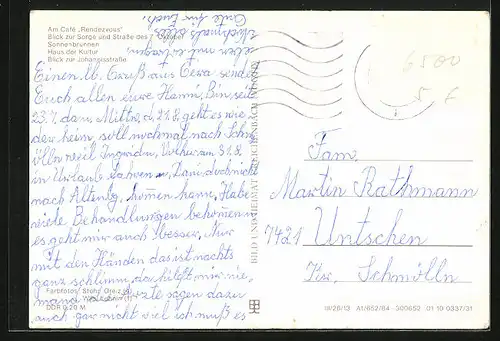 Am Café „Rendezvous"
Blick zur Sorge und Straße des 7. Oktober
Sonnenbrunnen
Haus der Kultur
Blick zur Johannisstraße
Einen lb. Gruß aus Gera sendet
Euch allen eure Hanni. Bin, seit
23.7. da m Mittw, d. 21.8. geht es wie
der heim, soll nochmal nach Schm
ölln weil Ingrid u. Volker am 31.8.
in Urlaub fahren u. dann doch nicht
nach Altenbg. kommen kann. Habe
viele Behandlungen bekommen
es geht mir auch besser. Nur
mit den Händen das ist nachts
ganz schlimm, da hilft mir nie
mand Ärzte sagen dazu
auch gar nicht viel ich muß es
selber mit
nochmals alles
Gute für Euch.
6500
Fam.
Martin Rathmann
7421 Untschen
Kr. Schmölln
BILD UND HEIMAT REICHENBACH
Farbfotos:
DDR 0,20 M
IV/26/13 A1/652/84 300652 01 10 0337/31